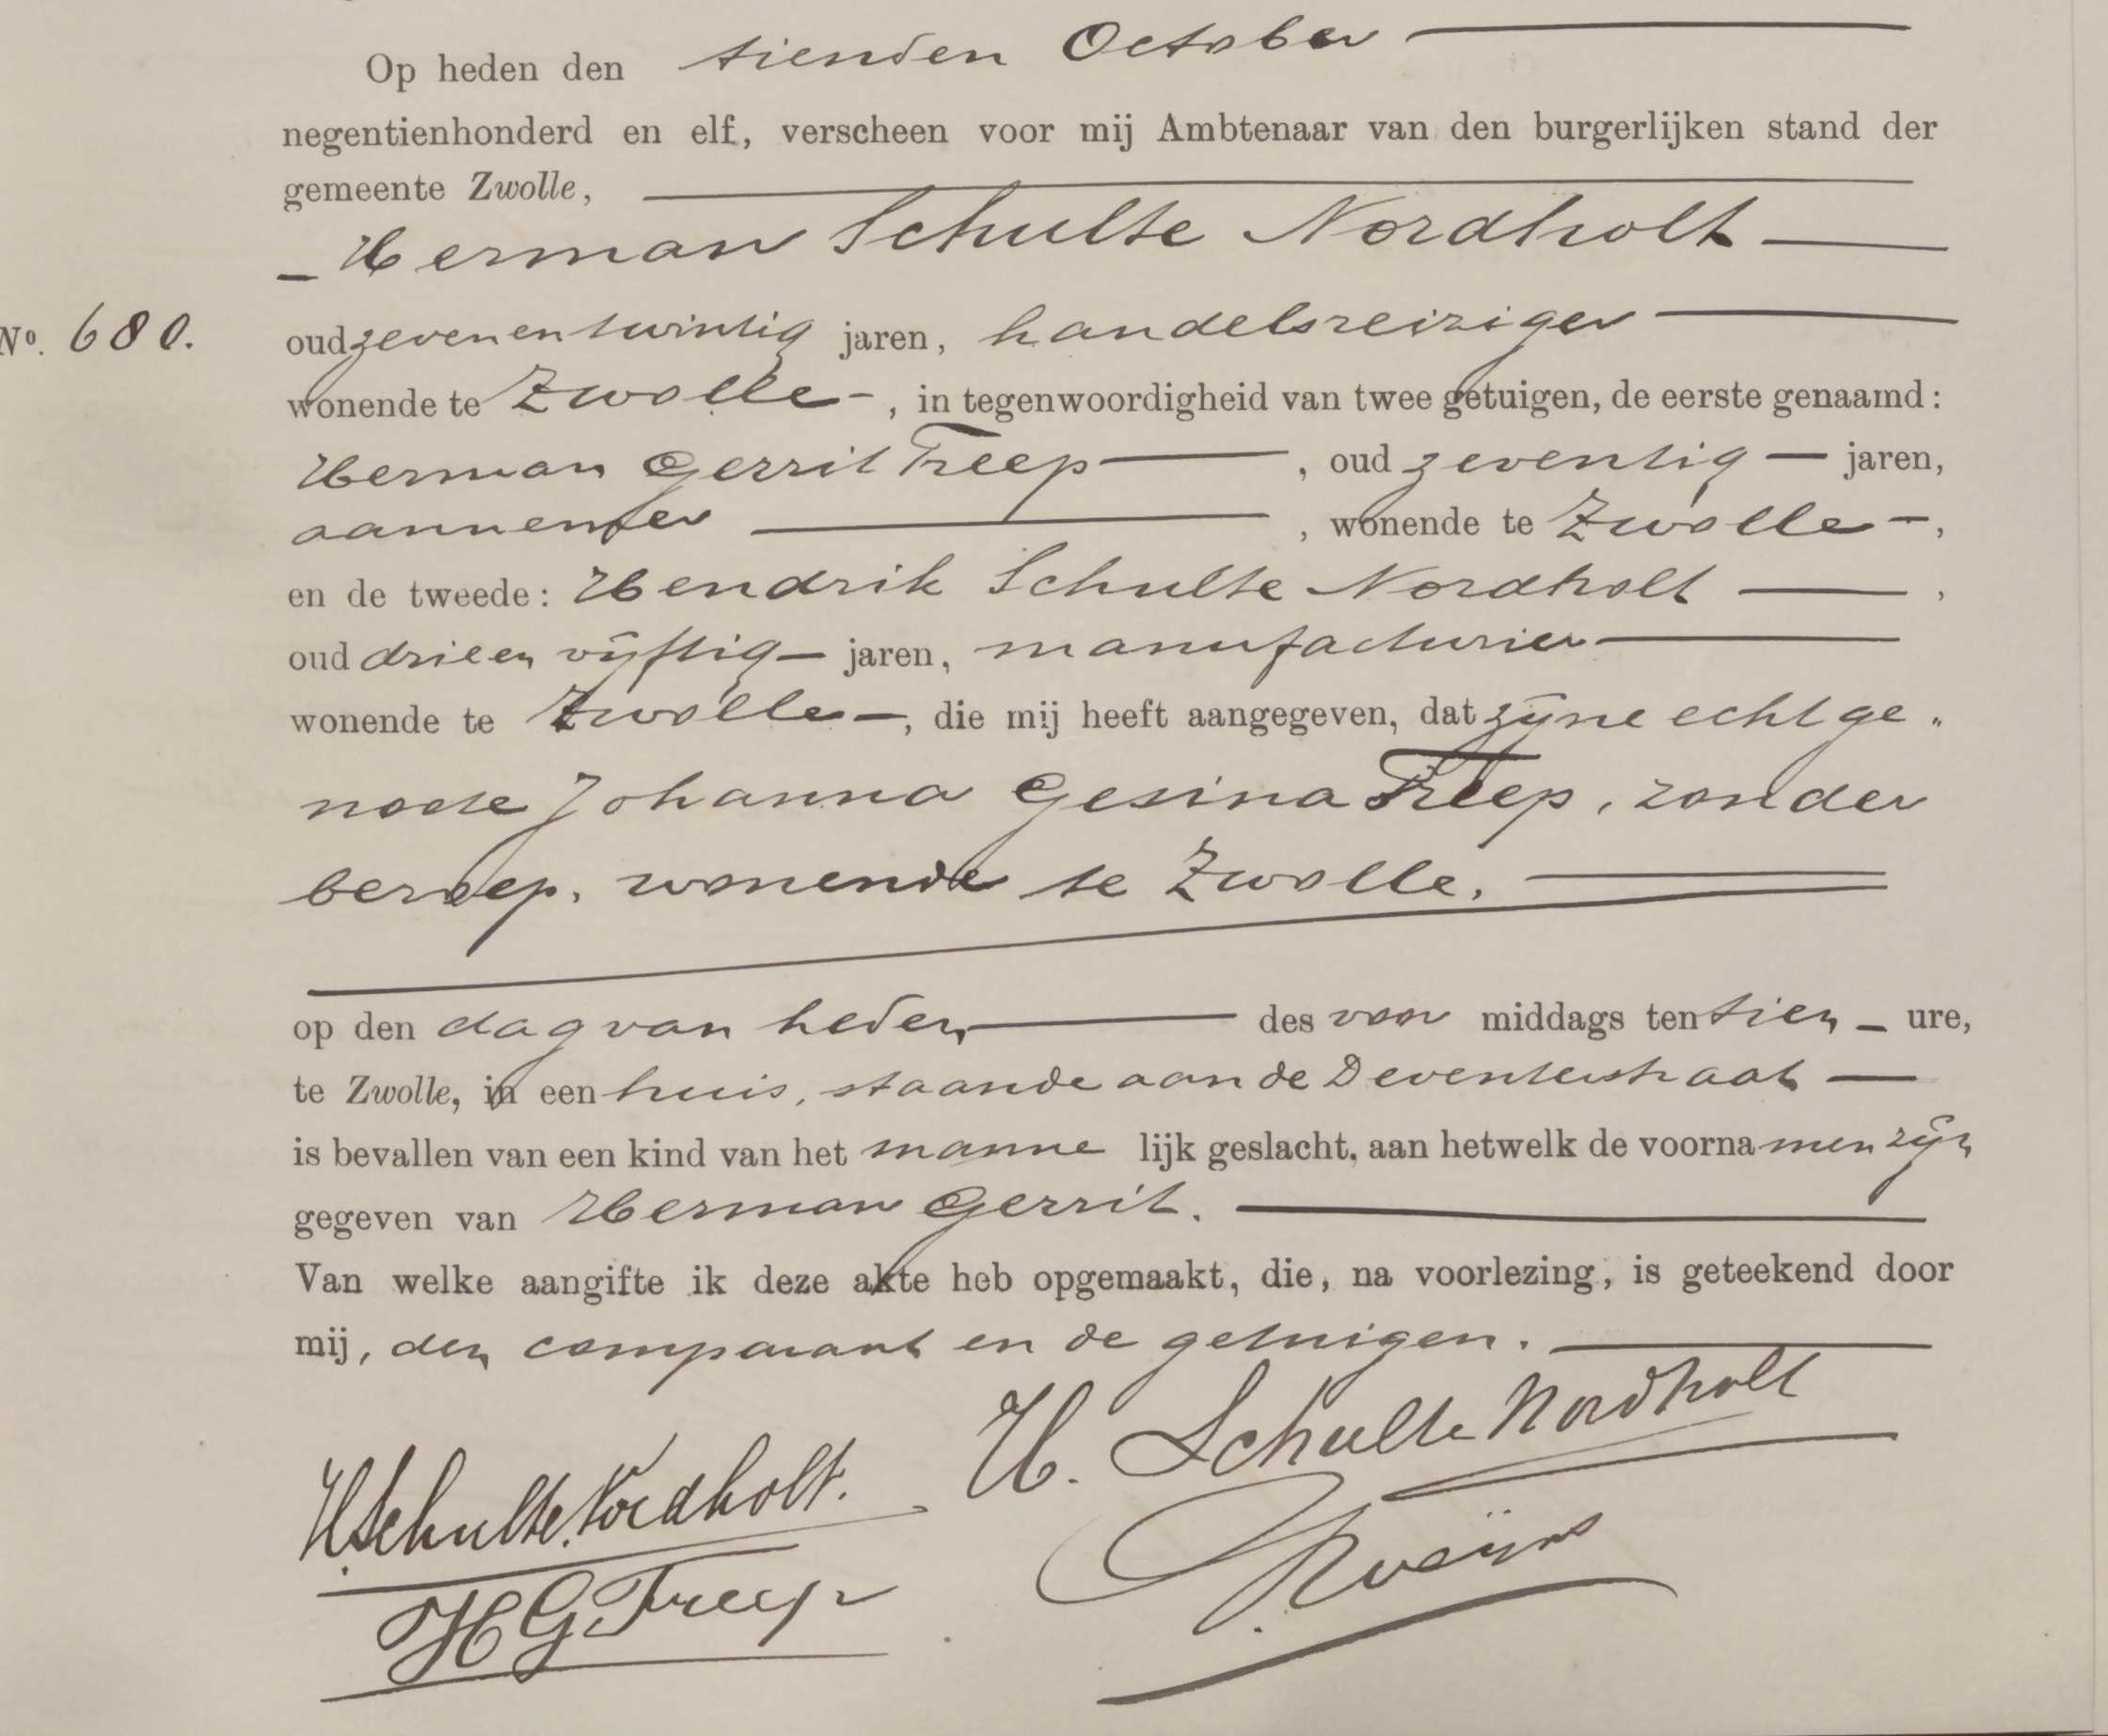 Op heden den tienden October
negentienhonderd en elf, verscheen voor mij Ambtenaar van den burgerlijken stand der
gemeente Zwolle,
Herman Schulte Nordholt
No. 680. oud zevenentwintig jaren, handelsreiziger
wonende te Zwolle, in tegenwoordigheid van twee getuigen, de eerste genaamd:
Herman Gerrit Treep, oud zeventig jaren,
aannemer, wonende te Zwolle,
en de tweede: Hendrik Schulte Nordholt,
oud drieenvijftig jaren, manufacturier
wonende te Zwolle, die mij heeft aangegeven, dat zijne echtge„
noote Johanna Gesina Treep, zonder
beroep, wonende te Zwolle,
op den dag van heden des voor middags ten tien ure,
te Zwolle, in een huis, staande aan de Deventerstraat
is bevallen van een kind van het manne lijk geslacht, aan hetwelk de voornamen zijn
gegeven van Herman Gerrit.
Van welke aangifte ik deze akte heb opgemaakt, die, na voorlezing, is geteekend door
mij, den comparant en de getuigen.
H. Schulte Nordholt
H. Schulte Nordholt.
HG Treep